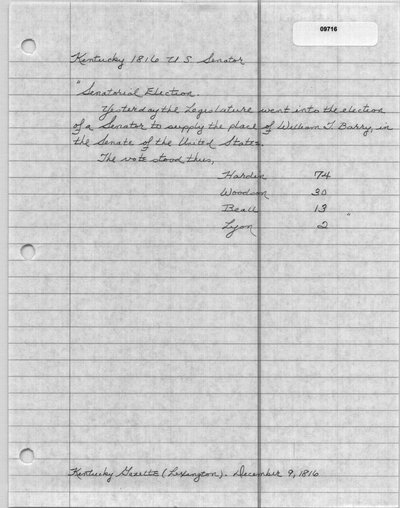 09716
Kentucky 1816 U.S. Senator
"Senatorial Election.
Yesterday the Legislature went into the election
of a Senator to supply the place of William T. Barry, in
the Senate of the United States.
The vote stood thus,
Hardin 74
Woodson 30
Beall 13
Lyon 2 "
Kentucky Gazette (Lexington). December 9, 1816